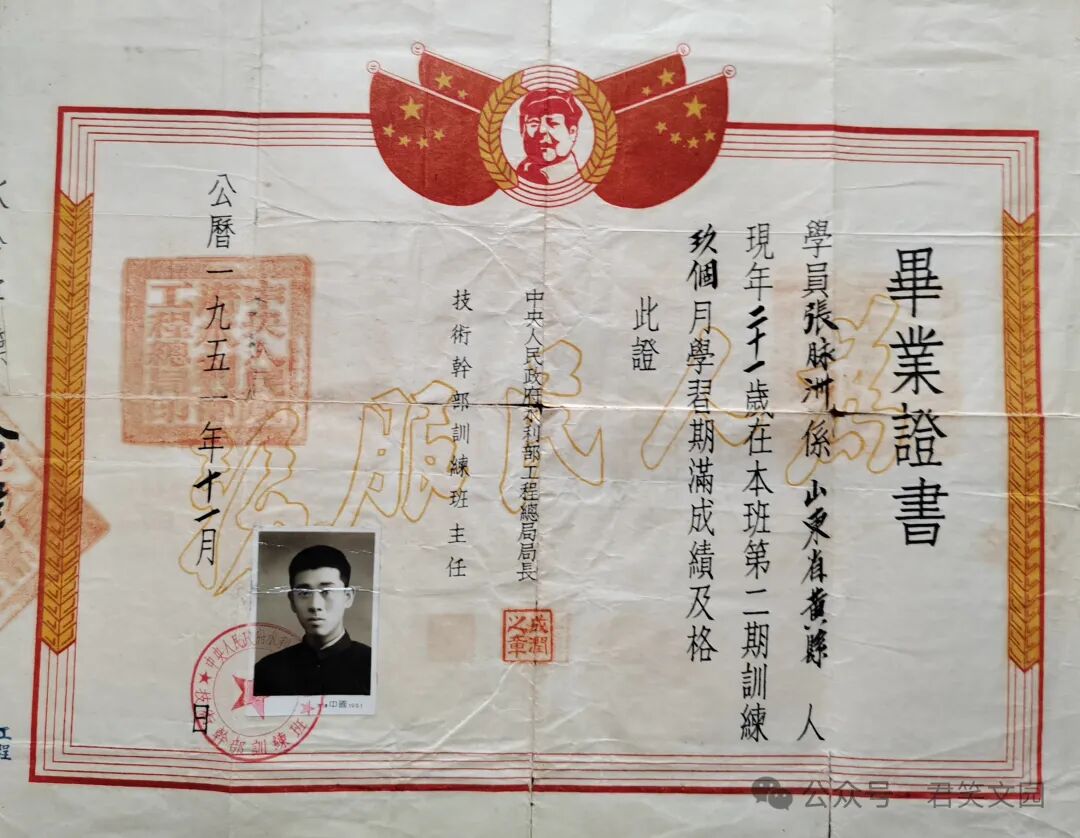 畢業證書
學員張脉洲係山東省黄縣人
現年二十一歲在本班第二期訓練
玖個月學習期滿成績及格
此證
中央人民政府水利部工程總局局長
技術幹部訓練班主任
公曆一九五一年十一月 日
為人民服務
之章
中國1951
技術幹部訓練班
工程
公众号 · 君笑文园